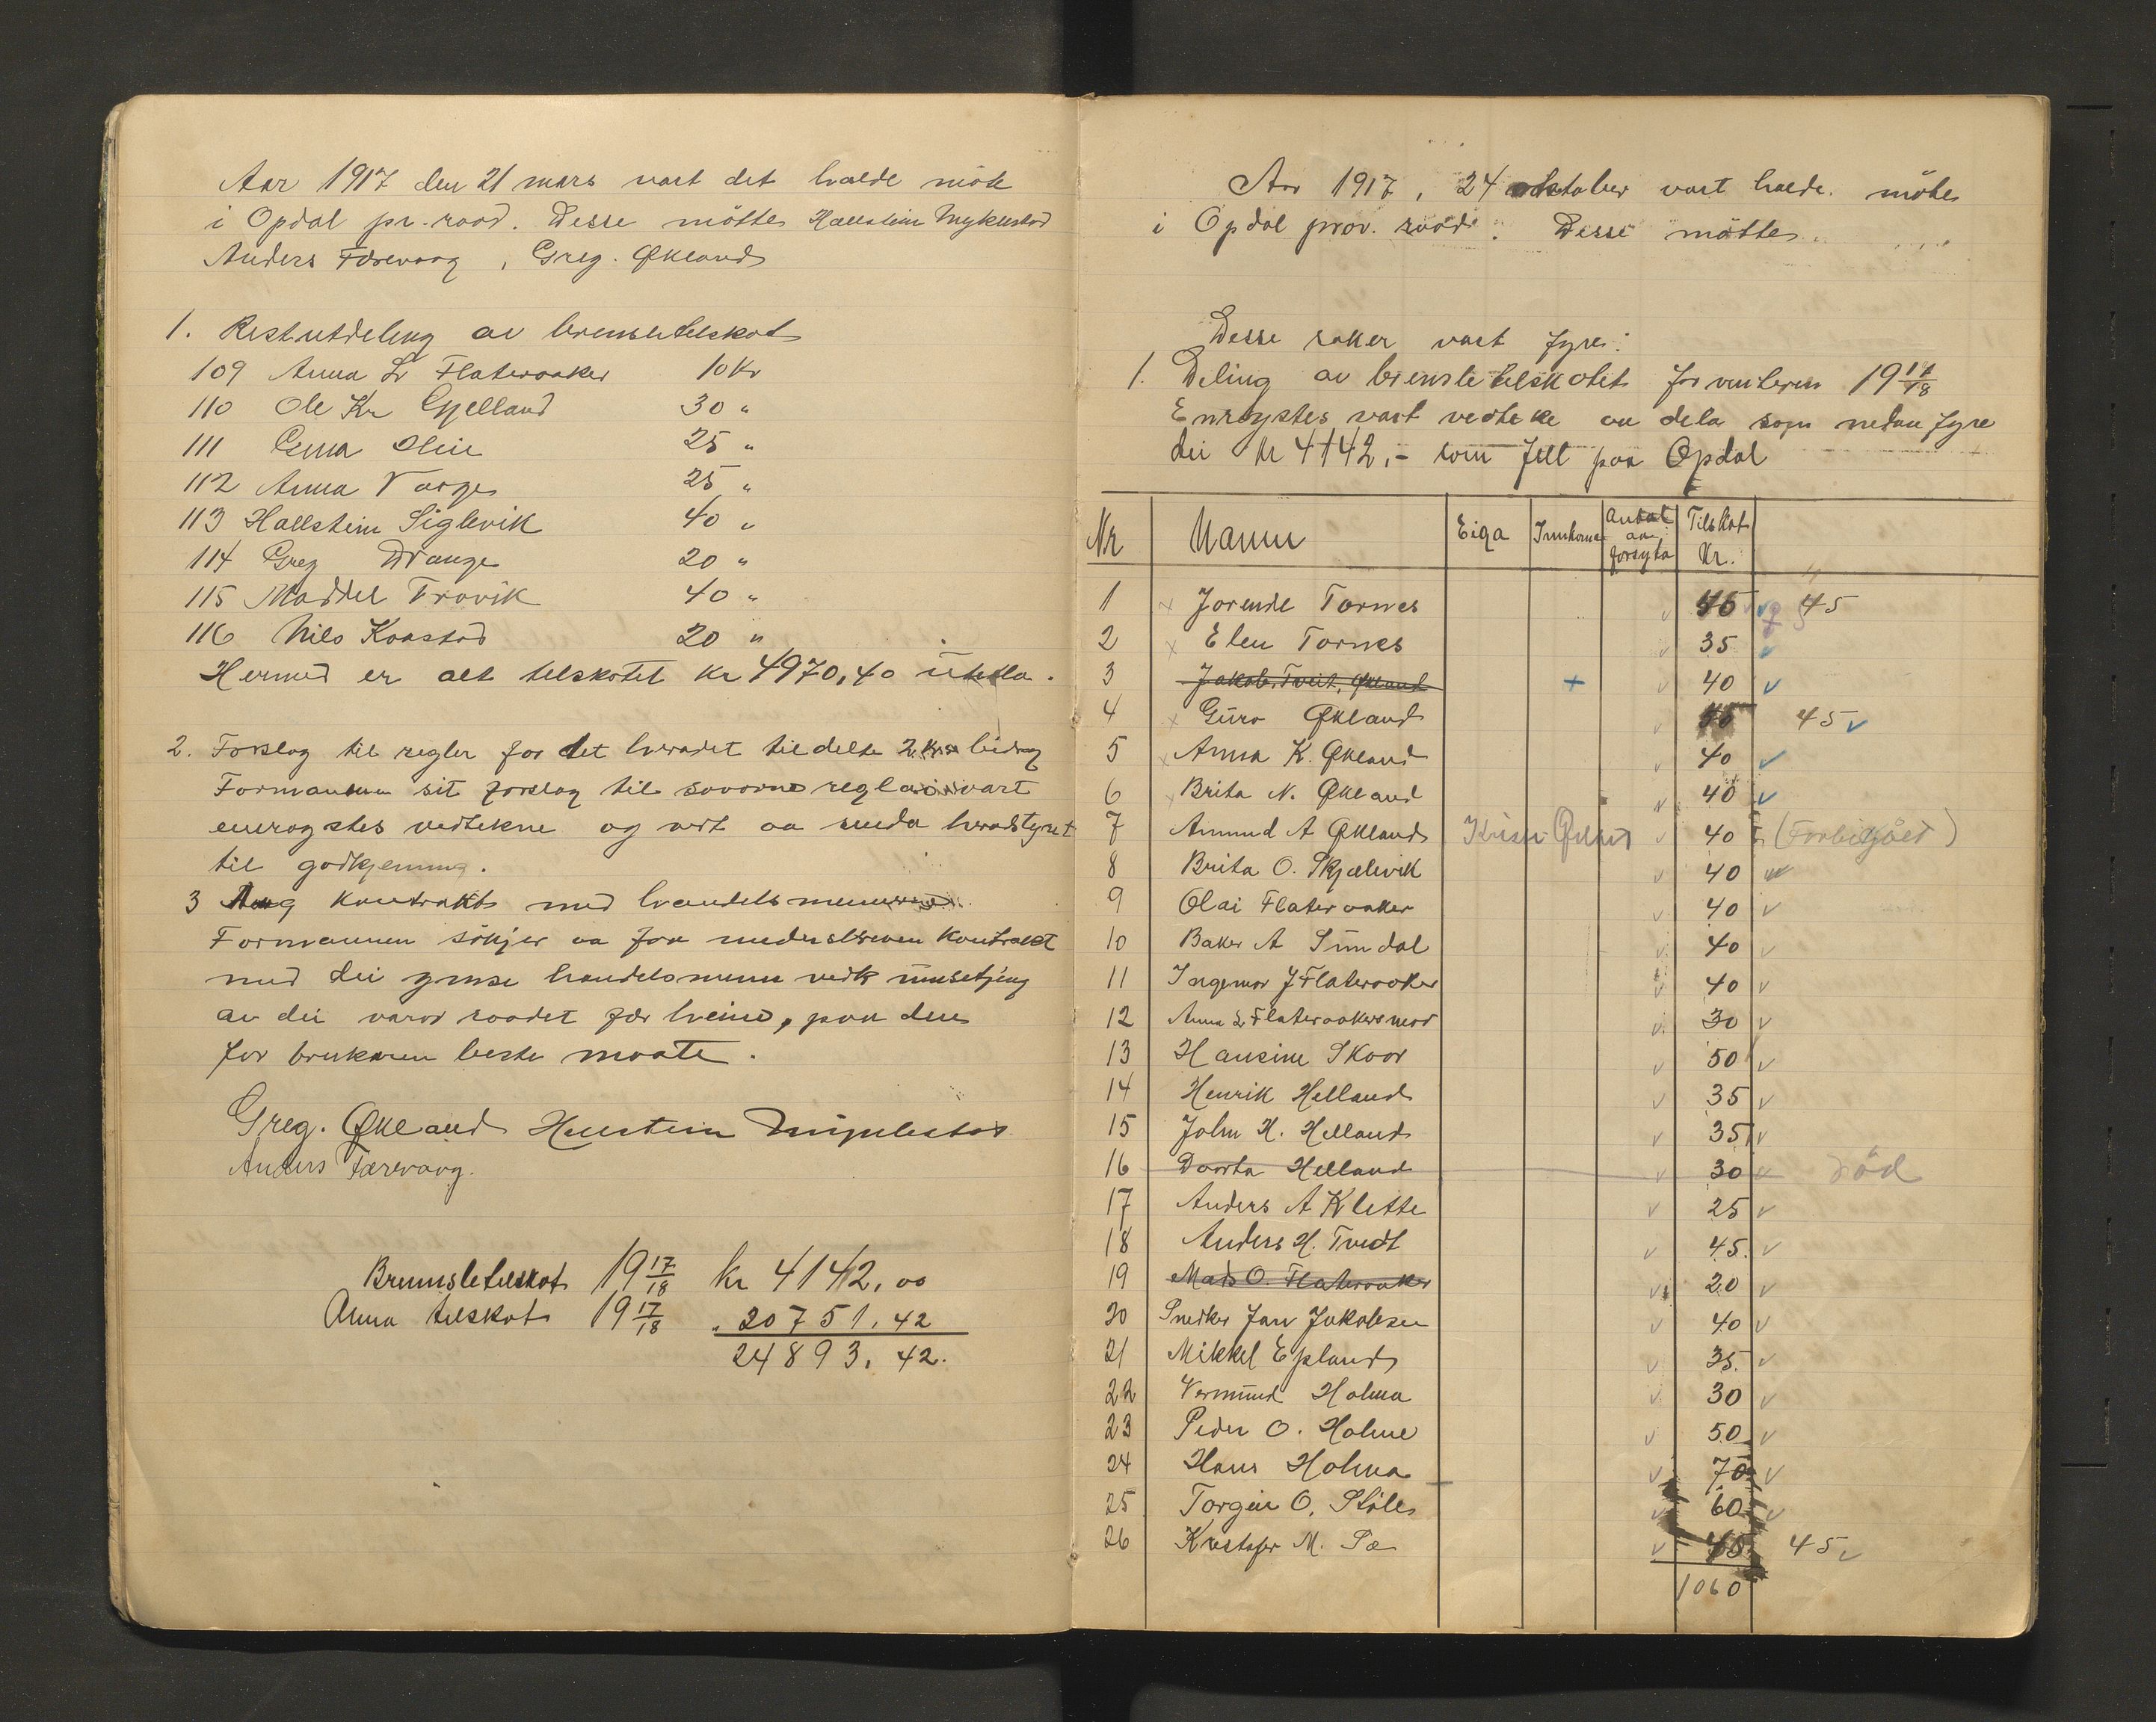 Aar 1917 den 21 mars vart det halde möte
i Opdal pr. raad. Desse möttes Hallstein Myklestad
Anders Færevaag, Greg. Økland
1. Restutdeling av brensletilskot
109 Anna Lr Flateraaker 10 Kr
110 Ole Kr Gjelland 30 "
111 Gema Oline 25 "
112 Anna Varge 25 "
113 Hallstein Siglevik 40 "
114 Greg Drange 20 "
115 Maddel Trovik 40 "
116 Nils Kaastad 20 "
Hermed er alt telskotet kr 4970,40 utdela.
2. Forslag til regler for det heradet tildelte 2 Kr bidrag
Formannen sit forslag til sovorne reglar vart
enrøgstes vedtekne og vert aa senda heradstyret
til godkjenning.
3 Ang kontrakt med handelsmennene
Formannen sökjer aa faa underskreven kontrakt
med dei ymse handelsmenn vedk umsetjing
av dei varor raadet fær heim, paa den
for brukaren beste maate.
Greg. Økland Hallstein Myklestad
Anders Færevaag.
Brennsletilskot 19 17/18 kr 4142,00
Anna tilskot 19 17/18 " 20751,42
24893,42.
Aar 1917, 24 oktober vart halde möte
i Opdal prov. raad. Desse möttes
Desse saker vart fyre:
1. Deling av brensletilskotet for vinteren 19 17/18
Enrøystes vart vedteke aa dela som nedanfyre
dei kr 4142,- som fell paa Opdal
Nr Namn Eiga Innkoma Antal aa forsyta Tilskot Kr.
1 Jorende Tornes 45 45
2 Elen Tornes 35
3 Jakob Tveit, Økland + 40
4 Guro Økland 45
5 Anna K. Økland 40
6 Brita N. Økland 40
7 Amund A Økland Økland 40 (Forbigået)
8 Brita O. Skjælevik 40
9 Olai Flateraaker 40
10 Baker A Sundal 40
11 Ingemar J Flateraaker 40
12 Anna L Flateraakersneset 30
13 Hansine Skaar 50
14 Henrik Helland 35
15 John H. Helland 35
16 Daarta Helland 30 död
17 Anders A Klette 25
18 Anders H. Tvedt 45
19 Mads O. Flateraaker 20
20 Snedker Jan Jakobsen 40
21 Mikkel Epland 35
22 Vermund Holma 30
23 Peder O. Holme 50
24 Hans Holma 70
25 Torgeir O. Støle 60
26 Kristofer M. Sæ 45 45
1060